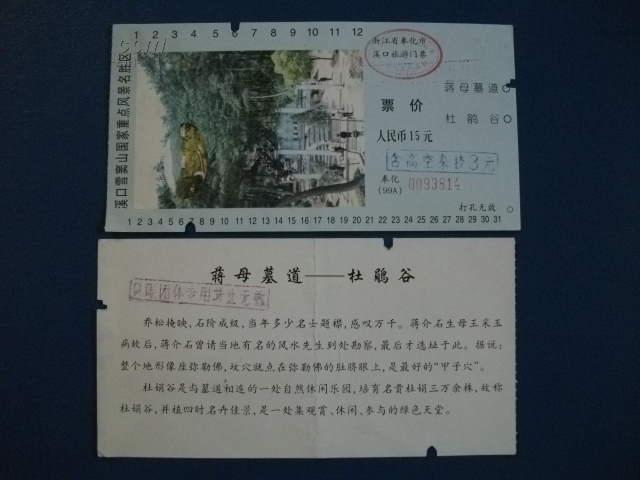 1 2 3 4 5 6 7 8 9 10 11 12
溪口雪窦山国家重点风景名胜区
浙江省奉化市
溪口旅游门票
蒋母墓道
杜鹃谷
票价
人民币15元
含高空杂技3元
奉化
(99A)
0093814
打孔无效
1 2 3 4 5 6 7 8 9 10 11 12 13 14 15 16 17 18 19 20 21 22 23 24 25 26 27 28 29 30 31
蒋母墓道——杜鹃谷
团体专用
乔松掩映,石阶成级,当年多少名士题襟,感叹万千。蒋介石生母王采玉
病故后,蒋介石曾请当地有名的风水先生到处勘察,最后才选址于此。据说:
整个地形像座弥勒佛,坟穴就点在弥勒佛的肚脐眼上,是最好的“甲子穴”。
杜鹃谷是与墓道相连的一处自然休闲乐园,培育名贵杜鹃三万余株,故称
杜鹃谷,并植四时名卉佳景,是一处集观赏、休闲、参与的绿色天堂。